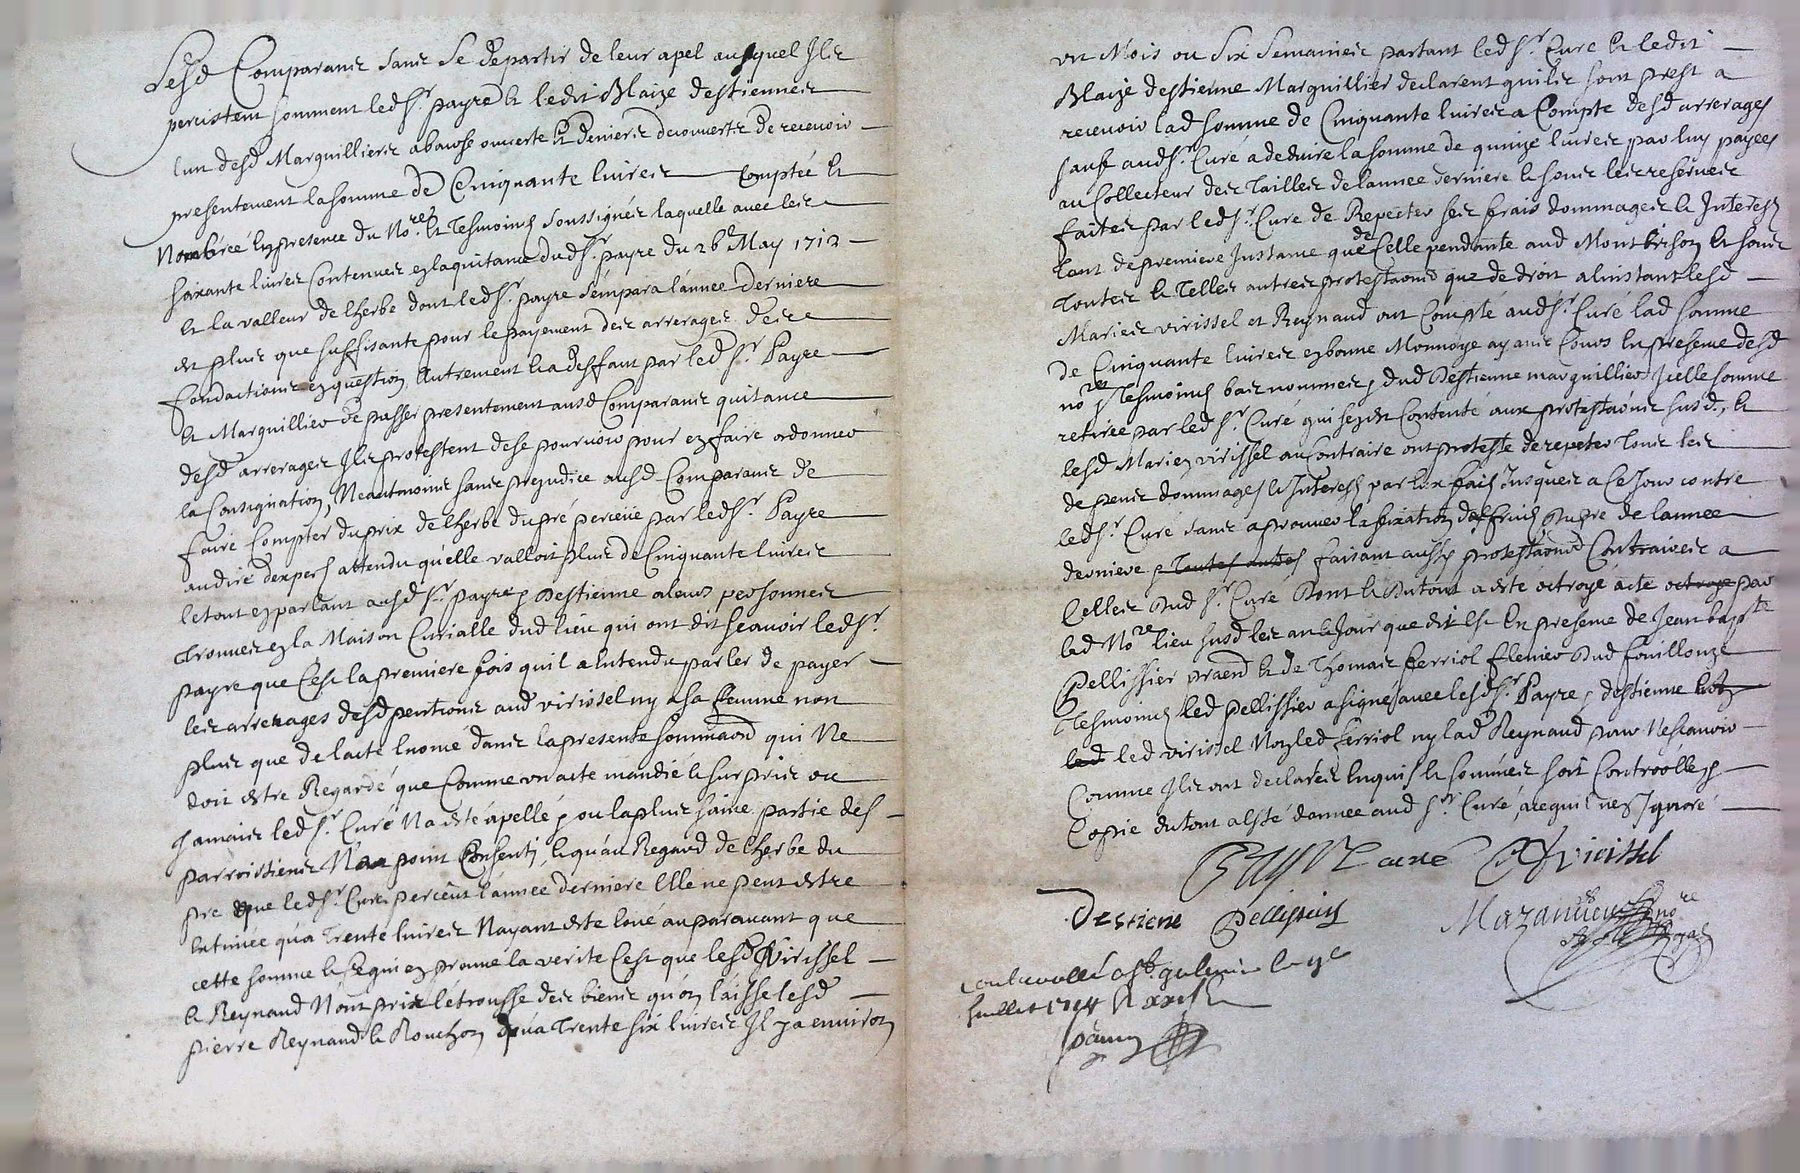 Lesd Comparans sans se departir de leur apel auquel Ils
percistent somment led Sr. payre & ledit Blaize destiennes
l'un desd Marguilliers a bource ouverte & deniers decouverts de recevoir
presentement la somme de Cinquante livres comptée &
Nombrée En presence du Nore. & Tesmoins soussignés laquelle avec les
soixante livres Contenues en la quitance dud Sr. payre du 26e May 1712
et la valleur de l'herbe dont led Sr. payre s'empara l'année derniere
est plus que suffisante pour le payement des arrerages desd
fondations en question, Autrement & a deffaut par led Sr. Payre
& Marguillier de passer presentement ausd Comparans quitance
desd arrerages Ils protestent de se pourvoir pour en faire ordonner
la Consignation, Neantmoins sans prejudice ausd Comparans de
faire Compter du prix de l'herbe du pré perceue par led Sr. Payre
au dire d'expers attendu qu'elle valloit plus de Cinquante livres
le tout en parlant ausd Srs. payre & Destienne a leurs personnes
trouvés en la Maison Curialle dud lieu qui ont dit scavoir led Sr.
payre que C'est la premiere fois qu'il a Entendu parler de payer
les arrerages desd pentions aud virissel ny a sa femme non
plus que de l'acte Enoncé dans la presente sommaon qui Ne
doit estre Regardé que Comme un acte mandié & surpris ou
Jamais led Sr. Curé N'a esté apellé & ou la plus saine partie des
parroissiens N'a point Consenti, & qu'au Regard de l'herbe du
pre que led Sr. Curé perceut l'année derniere Elle ne peut estre
Estimée qu'a Trente livres N'ayant esté loué auparavant que
cette somme & ce qui en prouve la verite C'est que lesd Virissel
& Reynaud N'ont prix l'étrousse des biens qu'on laisse lesd
pierre Reynaud & Rouchon qu'a Trente six livres Il y a environ
un Mois ou Six Semaines partant led Sr. Curé & ledit
Blaize destienne Marguillier declarent qu'ils sont prest a
recevoir lad somme de Cinquante livres a Compte desd arrerages
sauf aud Sr. Curé a deduire la somme de quinze livres par luy payées
au Collecteur des Tailles de l'année derniere & sous les reserves
faites par led Sr. Curé de Repeter ses frais dommages & Interests
Tant de premiere Instance que de Celle pendante aud Montbrison & sous
Toutes & Telles autres protestaons que de droit a l'instant lesd
Mariés virissel et Reynaud ont Compté aud Sr. Curé lad somme
de Cinquante livres en bonne Monnoye ayans Cours En presence desd
nore & Tesmoins bas nommés, & dud Destienne marguillier Icelle somme
retirée par led Sr. Curé qui s'en est Contenté aux protestaons susd., &
lesd Mariés virissel au Contraire ont protesté de repeter Tous les
depens dommages & Interests par Eux faits Jusques a Ce Jour contre
led Sr. Curé sans aprouver la fixation des fruits du pre de l'année
derniere & Toutes autres faisant aussy protestaons Contraires a
Celles dud Sr. Curé Dont & du tout a esté octroyé acte octroye par
led Nore lieu susd les an & Jour que dit Est En presence de Jean bapte
Pellissier praend & de Thomas ferriol clenier dud fouillouze
Tesmoins led pellissier a signé avec lesd Sr. Payre, & destienne
led led virissel Non led ferriol ny lad Reynaud pour Ne scavoir
Comme Ils ont declarés Enquis & sommés soit Controollé &
Copie du tout a esté donnée aud Sr. Curé, a ce qu'il n'en Ignore
Payre Curé Virissel
destiene Pellissier Mazanieu nore
Royal
controollé a St. galmier le 9e
Juillet 1714 R xxi s